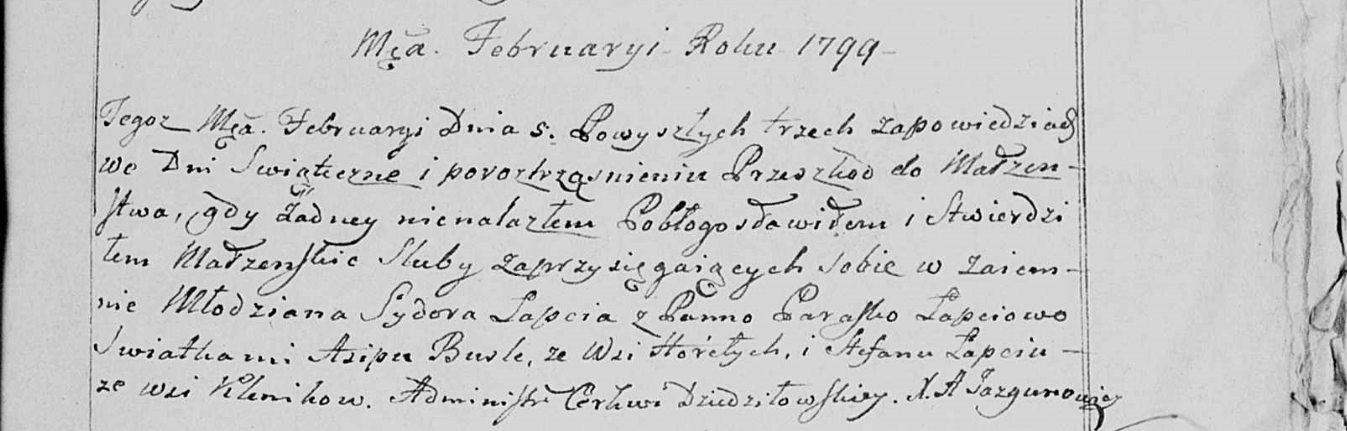 Mca. Februaryi Roku 1799
Tegoz Mca. Februaryi Dnia 5. Powyszłych trzech zapowiedziach
we Dni Swiąteczne i poroztrząsnieniu Przeszkod do Małzen-
stwa, gdy Zadney nienalazłem Pobłogosławiłem i Stwierdzi
łem Małzenskie Sluby zaprzysięgaiących sobie w zaiem-
nie Młodziana Sydora Łapcia z Panno Parasko Łapciowo
Swiatkami Asipu Busle, ze Wsi Horełych, i Stefanu Łapciu-
ze wsi Klenikow. Administr Cerkwi Dziedziłowskiey. X. A Jazgunowicz